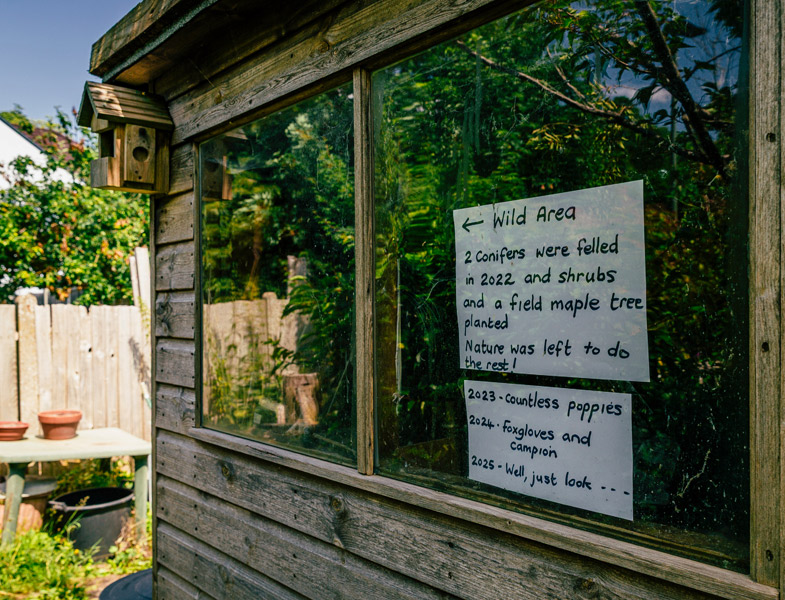 ← Wild Area
2 Conifers were felled
in 2022 and shrubs
and a field maple tree
planted
Nature was left to do
the rest!
2023 - Countless poppies
2024 - Foxgloves and
Campion
2025 - Well, just look ---